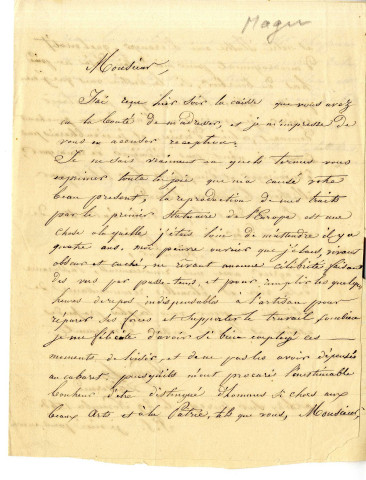 Magu
Monsieur,
J'ai reçu hier soir la caisse que vous avez
eu la bonté de m'adresser, et je m'empresse de
vous en accuser reception.
Je ne sais vraiment en quels termes vous
exprimer toute la joie que m'a causé votre
beau present, la reproduction de mes traits
par le premier Statuaire de l'Europe est une
chose à laquelle j'étais loin de m'attendre il y a
quatre ans. moi pauvre ouvrier que j'étais, vivant
obscur et caché, ne rêvant aucune célébrité faisant
des vers par passe-tems, et pour remplir les quelques
heures de repos indispensables à l'artisan pour
réparer ses forces et supporter le travail
je me félicite d'avoir si bien employé ces
momens de loisir, et de ne pas les avoir dépensés
au cabaret. puisqu'ils m'ont procuré l'inestimable
bonheur d'etre distingué d'hommes si chers aux
beaux Arts et à la Patrie, tels que vous, Monsieur,